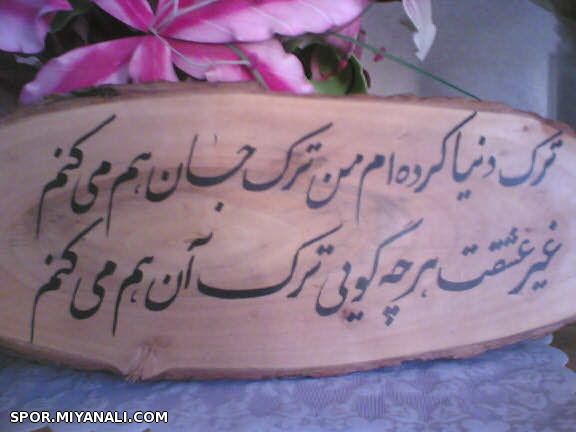 ترک دنیا کرده ام من ترک جان هم می کنم
غیر عشقت هرچه گویی ترک آن هم می کنم
SPOR.MIYANALI.COM